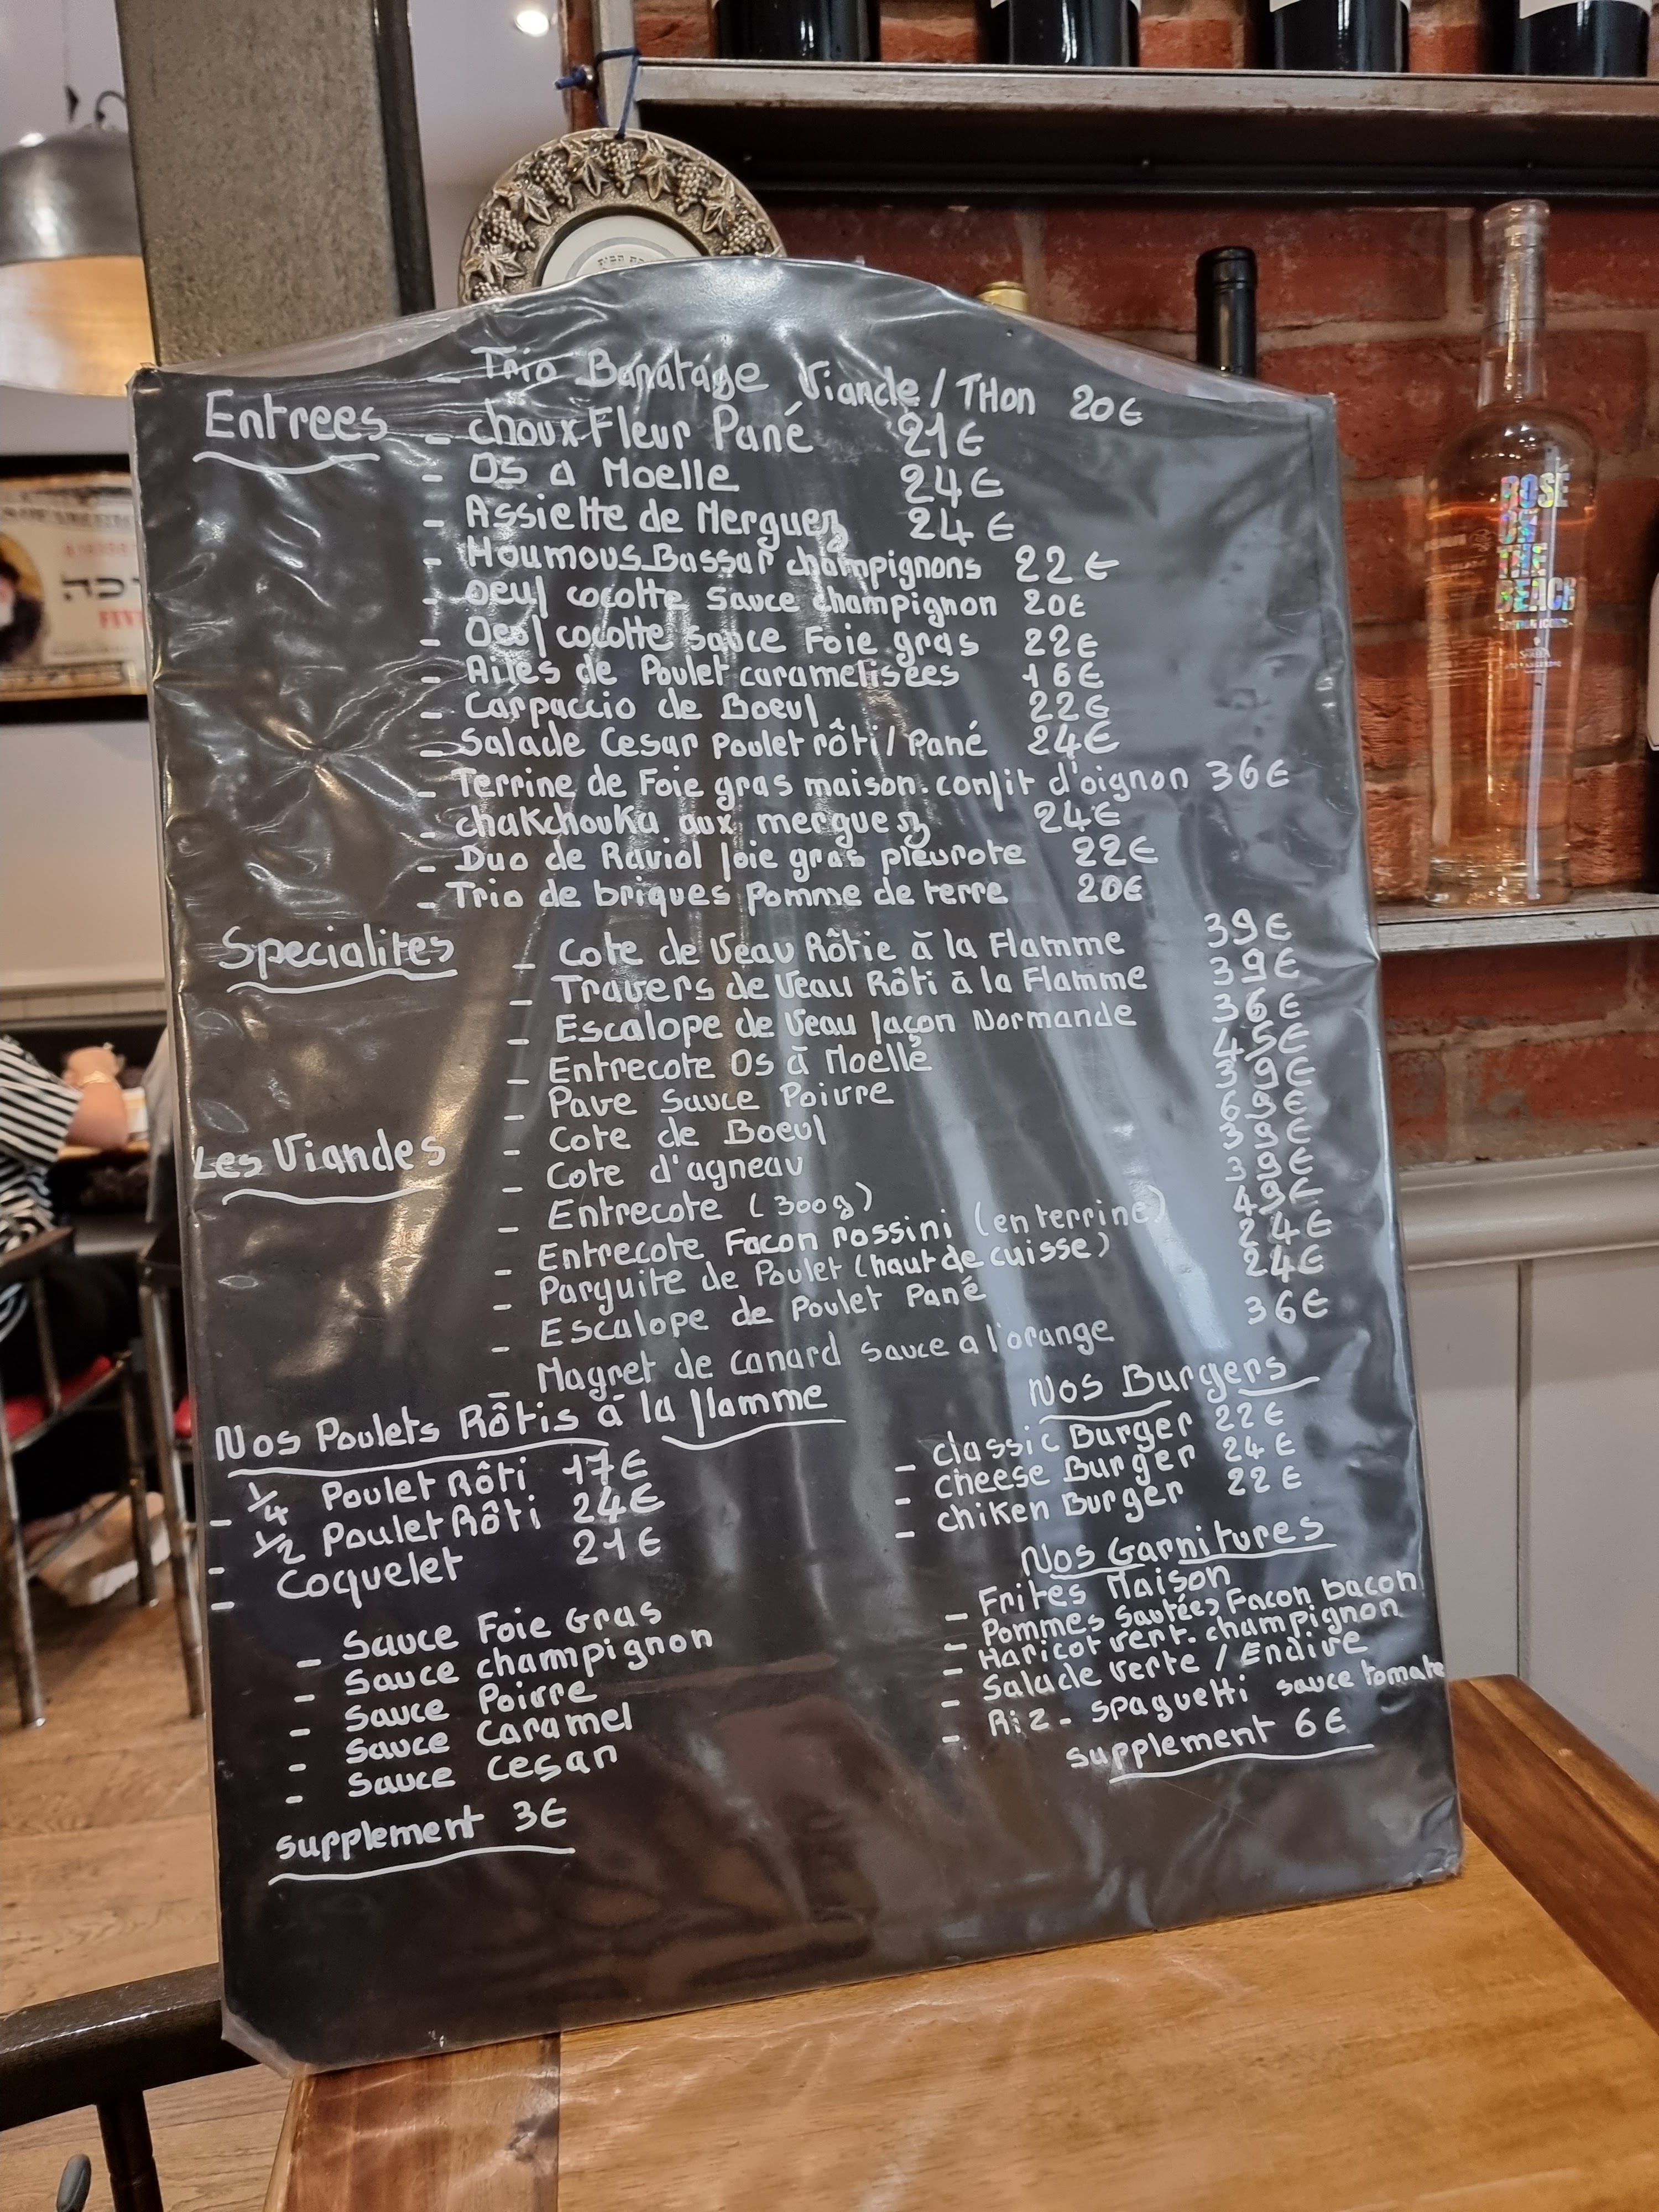 - Trio Banatage Viande / THon 20€
Entrees
- choux Fleur Pané 21€
- Os a Moelle 24€
- Assiette de Merguez 24€
- Houmous Bassar champignons 22€
- oeuf cocotte sauce champignon 20€
- Oeuf cocotte sauce Foie gras 22€
- Ailes de Poulet caramelisées 16€
- Carpaccio de Boeuf 22€
- Salade Cesar Poulet rôti / Pané 24€
- Terrine de Foie gras maison. confit d'oignon 36€
- chakchouka aux merguez 24€
- Duo de Raviol foie gras pleurote 22€
- Trio de briques Pomme de terre 20€
Specialites
- Cote de Veau Rôtie à la Flamme 39€
- Travers de Veau Rôti à la Flamme 39€
- Escalope de Veau façon Normande 36€
- Entrecote Os à Moelle 45€
- Pave Sauce Poivre 39€
Les Viandes
- Cote de Boeuf 69€
- Cote d'agneau 39€
- Entrecote (300g) 39€
- Entrecote Facon Rossini (en terrine) 49€
- Parguite de Poulet (haut de cuisse) 24€
- Escalope de Poulet Pané 24€
- Magret de canard sauce a l'orange 36€
Nos Poulets Rôtis à la flamme
- 1/4 Poulet Rôti 17€
- 1/2 Poulet Rôti 24€
- Coquelet 21€
- Sauce Foie Gras
- Sauce champignon
- Sauce Poivre
- Sauce Caramel
- Sauce Cesar
supplement 3€
Nos Burgers
- classic Burger 22€
- cheese Burger 24€
- chiken Burger 22€
Nos Garnitures
- Frites Maison
- Pommes sautées Facon bacon
- Haricot vert - champignon
- Salade verte / Endive
- Riz - spaguetti sauce tomate
supplement 6€
ROSÉ
ON
THE
BEACH